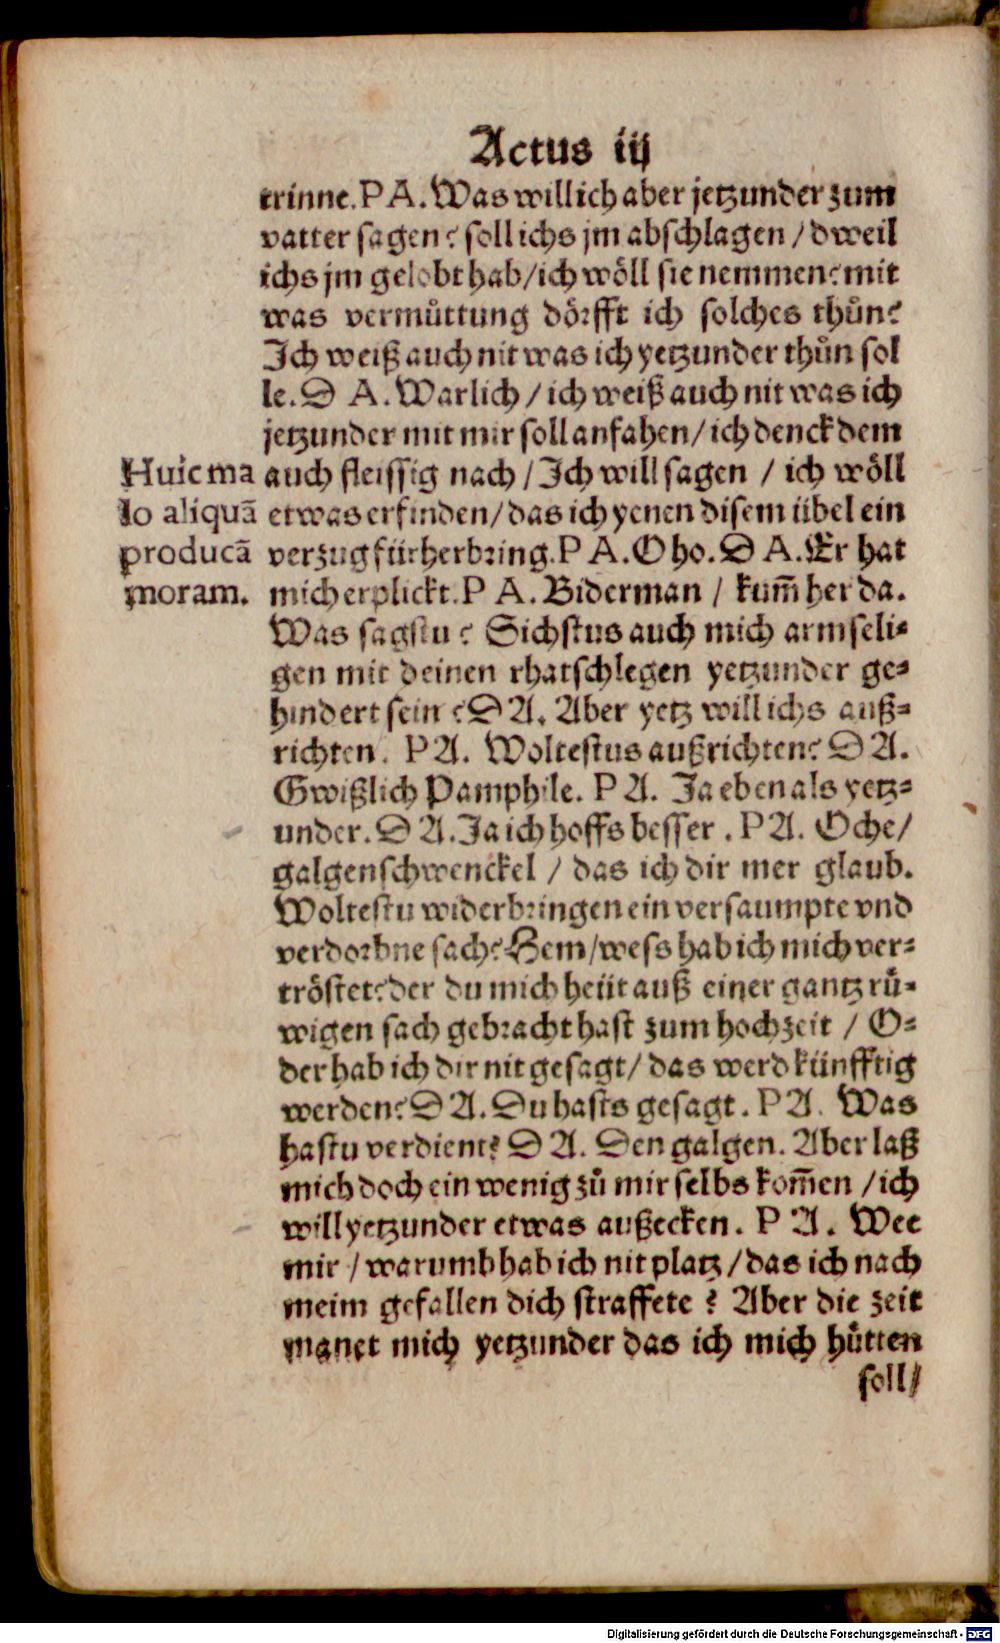 Actus iij
trinne. P A. Was will ich aber jetzunder zum
vatter sagen? soll ichs jm abschlagen / dweil
ichs jm gelobt hab / ich wöll sie nemmen? mit
was vermůttung dörfft ich solches thůn?
Ich weiß auch nit was ich yetzunder thůn sol
le. D A. Warlich / ich weiß auch nit was ich
jetzunder mit mir soll anfahen / ich denck dem
auch fleissig nach / Ich will sagen / ich wöll
etwas erfinden / das ich yenen disem übel ein
verzug fürherbring. P A. Oho. D A. Er hat
mich erplickt. P A. Biderman / kum̃ her da.
Was sagstu? Sichstus auch mich armseli-
gen mit deinen rhatschlegen yetzunder ge-
hindert sein? D A. Aber yetz will ichs auß-
richten. P A. Woltestus außrichten? D A.
Gwißlich Pamphile. P A. Ja eben als yetz-
under. D A. Ja ich hoffs besser. P A. Oche /
galgenschwenckel / das ich dir mer glaub.
Woltestu widerbringen ein versaumpte vnd
verdorbne sach? Hem / wess hab ich mich ver-
tröstet? der du mich heüt auß einer gantz rů-
wigen sach gebracht hast zum hochzeit / O-
der hab ich dir nit gesagt / das werd künfftig
werden? D A. Du hasts gesagt. P A. Was
hastu verdient? D A. Den galgen. Aber laß
mich doch ein wenig zů mir selbs kom̃en / ich
will yetzunder etwas außecken. P A. Wee
mir / warumb hab ich nit platz / das ich nach
meim gefallen dich straffete? Aber die zeit
manet mich yetzunder das ich mich hůtten
soll /
Huic ma
lo aliquã
producã
moram.
Digitalisierung gefördert durch die Deutsche Forschungsgemeinschaft - DFG